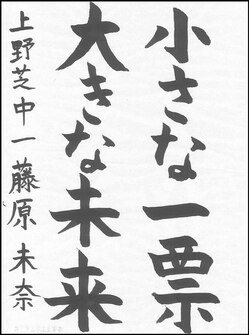 小さな一票
大きな未来
上野芝中一藤原未奈